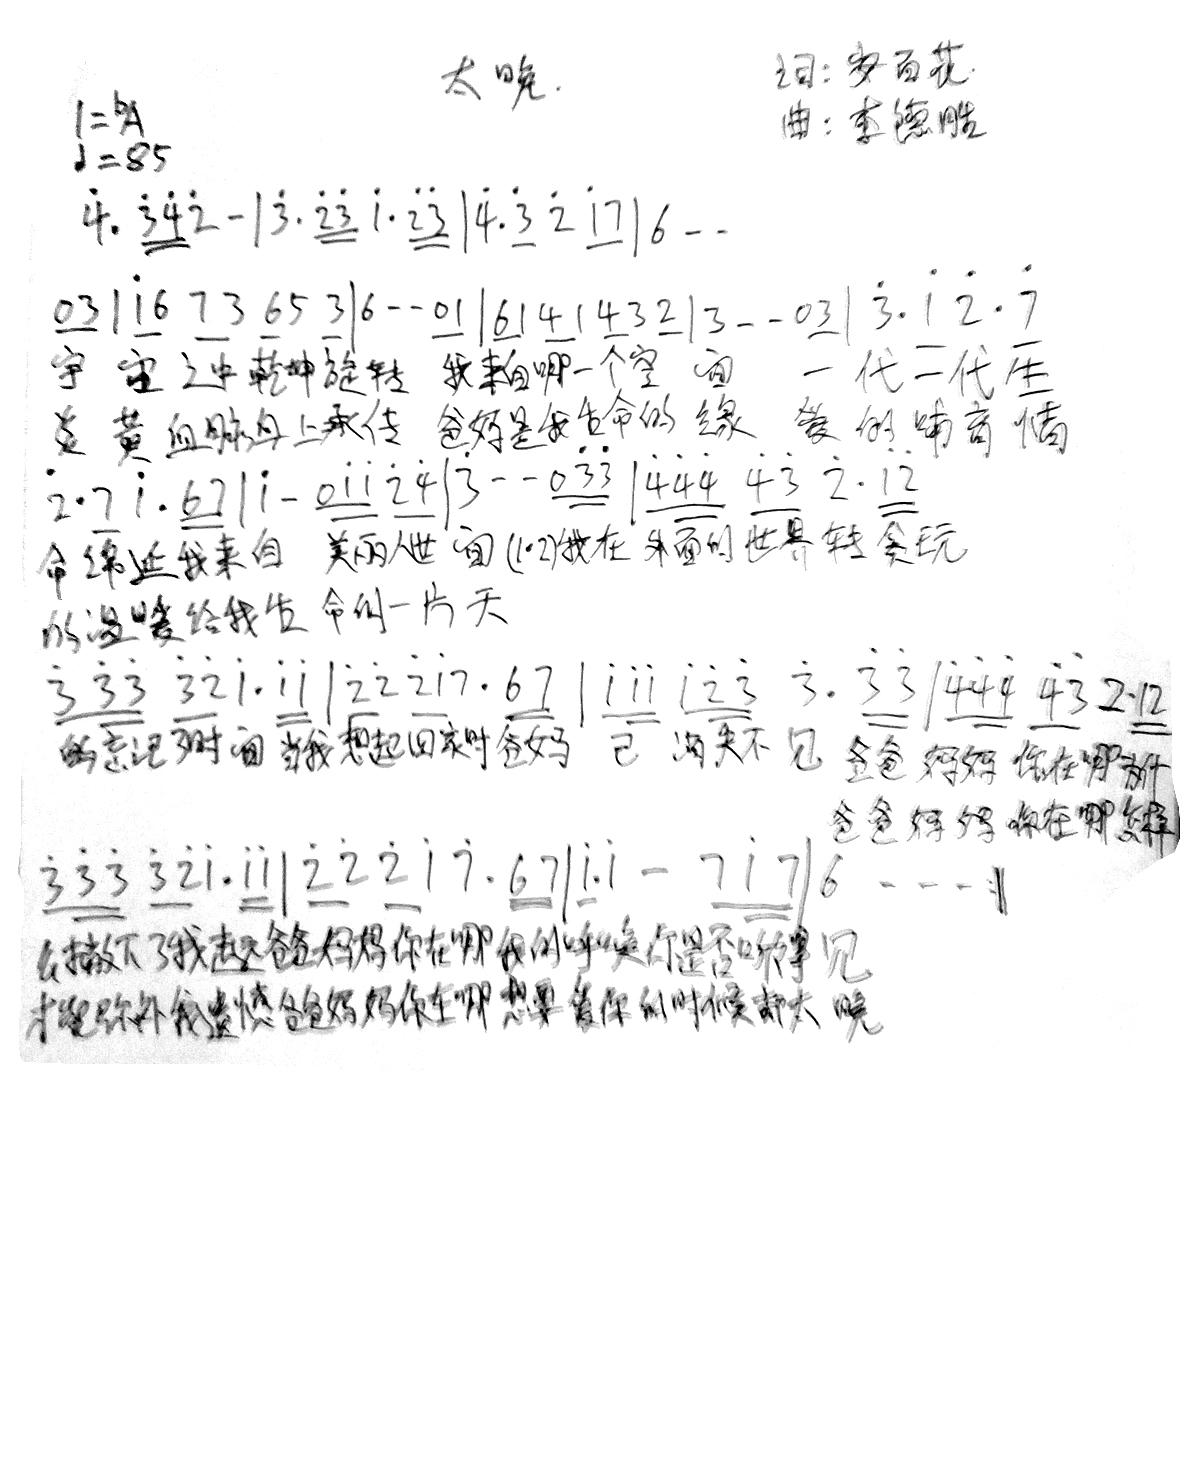 太晚.
词: 安百花.
曲: 李德胜
1=♭A
♩=85
4̇. 3̇4̇2̇ - | 3̇. 2̇3̇ 1̇. 2̇3̇ | 4̇. 3̇ 2̇ 1̇7 | 6 - -
03 | 1̇6 73 65 3 | 6 - - 01 | 61 41 43 2 | 3 - - 03 | 3̇. 1̇ 2̇. 7
宇宙之中乾坤旋转 我来自哪一个空间 一代二代生
炎黄血脉身上承传 爸妈是我生命的缘 爱的哺育情
2̇. 7 1̇. 67 | 1̇ - 01̇1̇ 2̇4̇ | 3̇ - - 03̇3̇ | 4̇4̇4̇ 4̇3̇ 2̇. 1̇2̇
命绵延我来自 美丽人世间 (1.2)我在外面的世界转贪玩
的温暖给我生命的一片天
3̇ 3̇3̇ 3̇2̇1̇. 1̇1̇ | 2̇2̇ 2̇1̇7. 67 | 1̇1̇1̇ 1̇2̇3̇ 3̇. 3̇3̇ | 4̇4̇4̇ 4̇3̇ 2. 12
的忘记了时间 当我想起回家时爸妈 已消失不见 爸爸妈妈你在哪为什
爸爸妈妈你在哪怎样
3̇3̇3̇ 3̇2̇1̇. 1̇1̇ | 2̇2̇ 2̇1̇ 7. 67 | 1̇. 1̇ - 71̇7 | 6 - - - :||
么撇下了我走远爸爸妈妈你在哪我的呼唤你是否听得见
才能弥补我遗憾爸爸妈妈你在哪想要爱你的时候却太晚